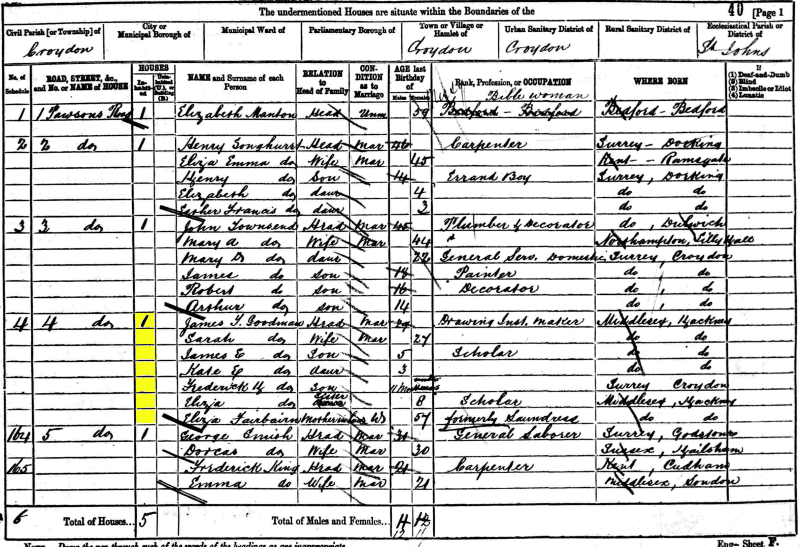 The undermentioned Houses are situate within the Boundaries of the
40 [Page 1
Civil Parish [or Township] of
City or Municipal Borough of
Municipal Ward of
Parliamentary Borough of
Town or Village or Hamlet of
Urban Sanitary District of
Rural Sanitary District of
Ecclesiastical Parish or District of
Croydon
Croydon
Croydon
St Johns
No. of Schedule
ROAD, STREET, &c., and No. or NAME of HOUSE
HOUSES
Inhabited
Uninhabited (U.), or Building (B.)
NAME and Surname of each Person
RELATION to Head of Family
CONDITION as to Marriage
AGE last Birthday of
Males
Females
Rank, Profession, or OCCUPATION
WHERE BORN
If (1) Deaf-and-Dumb (2) Blind (3) Imbecile or Idiot (4) Lunatic
Bible woman
1 1 Pawsons Road 1 Elizabeth Manton Head Unm 39 Bedford - Bedford Bedford - Bedford
2 2 do 1 Henry Songhurst Head Mar 46 Carpenter Surrey - Dorking
Eliza Emma do Wife Mar 45 Kent - Ramsgate
Henry do Son 14 Errand Boy Surrey, Dorking
Elizabeth do daur 4 do do
Esther Francis do daur 2 do do
3 3 do 1 John Townsend Head Mar 45 Plumber & Decorator do, Dulwich
Mary A do Wife Mar 44 Northampton,
Mary do daur 22 General Serv. Domestic Surrey, Croydon
James do son 19 Painter do do
Robert do son 16 Decorator do do
Arthur do son 14 do do
4 4 do 1 James T. Goodman Head Mar 29 Drawing Inst. maker Middlesex, Hackney
Sarah do Wife Mar 27 do do
James E do Son 5 Scholar do do
Kate E do daur 3 do do
Frederick do Son 11 Mo months Surrey Croydon
Eliza do sister 8 Scholar Middlesex, Hackney
Eliza Fairbairn Motherinlaw W 57 formerly Laundress do do
164 5 do 1 George Smish Head Mar 31 General Laborer Surrey, Godstone
Dorcas do Wife Mar 30 Sussex, Hailsham
165 Frederick King Head Mar 21 Carpenter Kent, Cudham
Emma do Wife Mar 21 Middlesex, London
6 Total of Houses... 5 Total of Males and Females...
Eng—Sheet F.